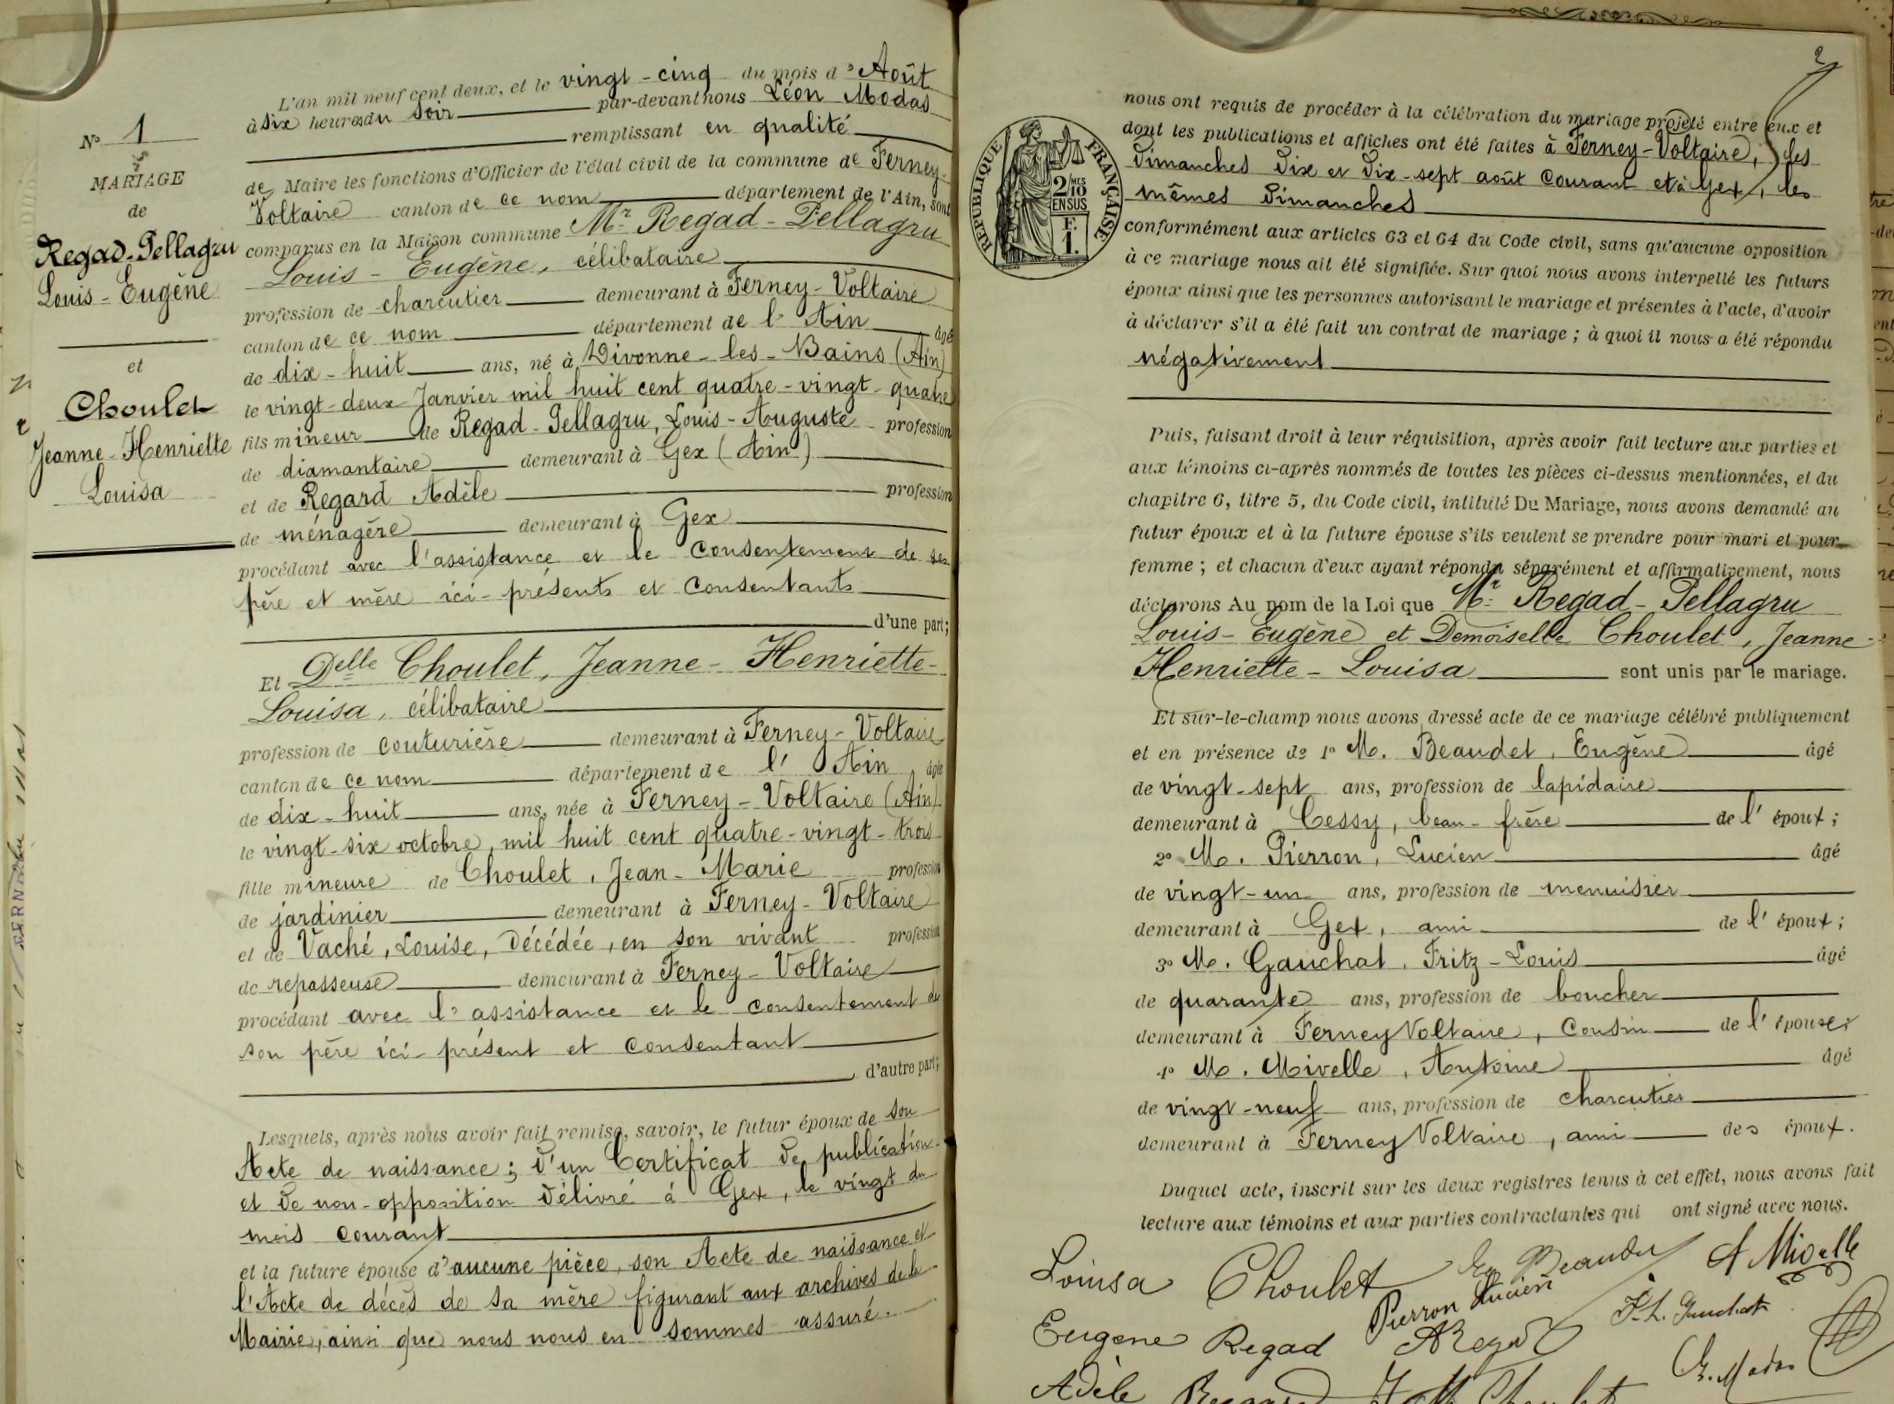 N° 1
MARIAGE
de
Regad-Pellagru
Louis-Eugène
et
Choulet
Jeanne-Henriette
Louisa
L'an mil neuf cent deux, et le vingt-cinq du mois d'Août
à six heures du soir par-devant nous Léon Modas
remplissant en qualité
de Maire les fonctions d'Officier de l'état civil de la commune de Ferney-
Voltaire canton de ce nom département de l'Ain, sont
comparus en la Maison commune Mr Regad-Pellagru
Louis-Eugène, célibataire
profession de charcutier demeurant à Ferney-Voltaire
canton de ce nom département de l'Ain âgé
de dix-huit ans, né à Divonne-les-Bains (Ain)
le vingt-deux Janvier mil huit cent quatre-vingt-quatre
fils mineur de Regad-Pellagru, Louis-Auguste profession
de diamantaire demeurant à Gex (Ain)
et de Regard Adèle profession
de ménagère demeurant à Gex
procédant avec l'assistance et le consentement de ses
père et mère ici-présents et consentants
d'une part;
Et Delle Choulet, Jeanne-Henriette-
Louisa, célibataire
profession de couturière demeurant à Ferney-Voltaire
canton de ce nom département de l'Ain âgée
de dix-huit ans, née à Ferney-Voltaire (Ain)
le vingt-six octobre, mil huit cent quatre-vingt-trois
fille mineure de Choulet, Jean-Marie profession
de jardinier demeurant à Ferney-Voltaire
et de Vaché, Louise, décédée, en son vivant profession
de repasseuse demeurant à Ferney-Voltaire
procédant avec l'assistance et le consentement de
son père ici-présent et consentant
d'autre part;
Lesquels, après nous avoir fait remise, savoir, le futur époux de son
Acte de naissance; d'un Certificat de publication
et de non-opposition délivré à Gex, le vingt du
mois courant
et la future épouse d'aucune pièce, son Acte de naissance et
l'Acte de décès de sa mère figurant aux archives de la
Mairie, ainsi que nous nous en sommes assuré.
2
RÉPUBLIQUE FRANÇAISE
2/10 MES
EN SUS
F.
1.
nous ont requis de procéder à la célébration du mariage projeté entre eux et
dont les publications et affiches ont été faites à Ferney-Voltaire, les
Dimanches Dix et Dix-sept août courant et à Gex, les
mêmes Dimanches
conformément aux articles 63 et 64 du Code civil, sans qu'aucune opposition
à ce mariage nous ait été signifiée. Sur quoi nous avons interpellé les futurs
époux ainsi que les personnes autorisant le mariage et présentes à l'acte, d'avoir
à déclarer s'il a été fait un contrat de mariage; à quoi il nous a été répondu
négativement
Puis, faisant droit à leur réquisition, après avoir fait lecture aux parties et
aux témoins ci-après nommés de toutes les pièces ci-dessus mentionnées, et du
chapitre 6, titre 5, du Code civil, intitulé Du Mariage, nous avons demandé au
futur époux et à la future épouse s'ils veulent se prendre pour mari et pour
femme; et chacun d'eux ayant répondu séparément et affirmativement, nous
déclarons Au nom de la Loi que Mr Regad-Pellagru
Louis-Eugène et Demoiselle Choulet, Jeanne-
Henriette-Louisa sont unis par le mariage.
Et sur-le-champ nous avons dressé acte de ce mariage célébré publiquement
et en présence de 1° M. Beaudet, Eugène âgé
de vingt-sept ans, profession de lapidaire
demeurant à Cessy, beau-frère de l'époux;
2° M. Pierron, Lucien âgé
de vingt-un ans, profession de menuisier
demeurant à Gex, ami de l'époux;
3° M. Gauchat, Fritz-Louis âgé
de quarante ans, profession de boucher
demeurant à Ferney Voltaire, cousin de l'épouse;
4° M. Mivelle, Antoine âgé
de vingt-neuf ans, profession de charcutier
demeurant à Ferney Voltaire, ami des époux.
Duquel acte, inscrit sur les deux registres tenus à cet effet, nous avons fait
lecture aux témoins et aux parties contractantes qui ont signé avec nous.
Louisa Choulet Eug Beaudet A Mivelle
Pierron Lucien F. L. Gauchat
Eugene Regad A Regad
Adèle Regard J M Choulet L. Modas